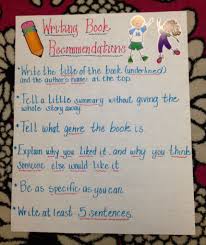 Writing Book
Recommendations
• Write the title of the book (underlined)
and the author's name at the top.
• Tell a little summary without giving the
whole story away.
• Tell what genre the book is.
• Explain why you liked it and why you think
someone else would like it.
• Be as specific as you can.
• Write at least 5 sentences.